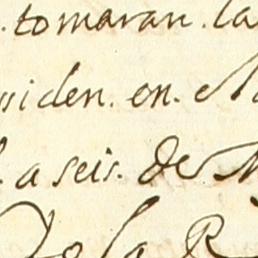 . tomaran . la
siden . en . M
. a seis . de M
de la R